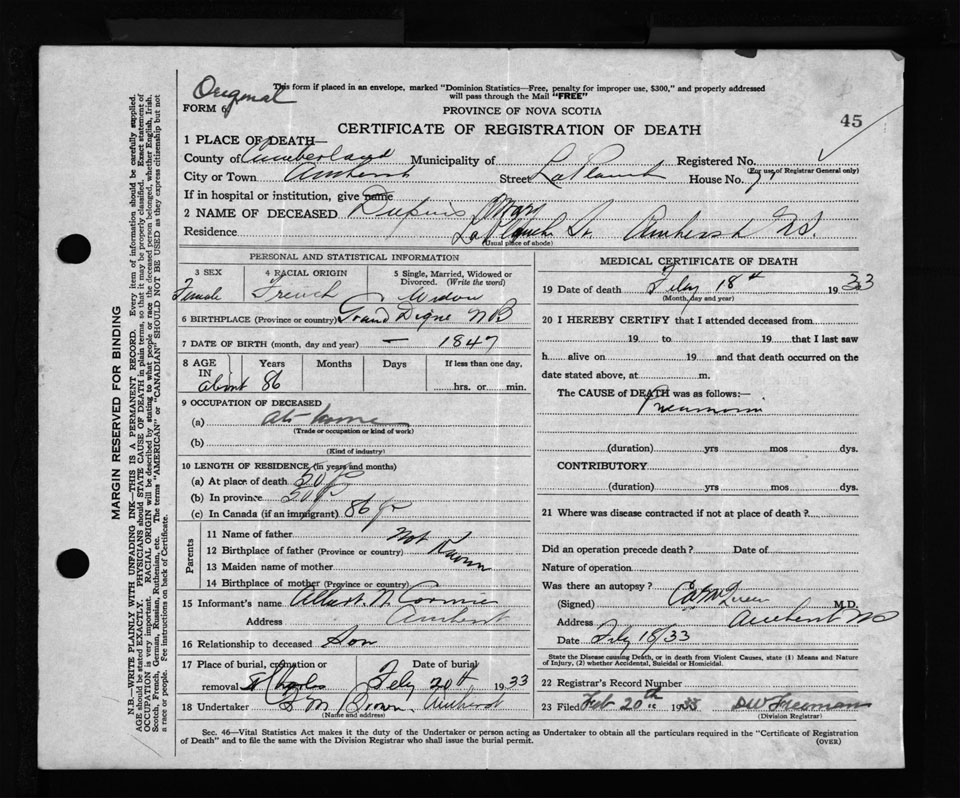 Original
This form if placed in an envelope, marked "Dominion Statistics—Free, penalty for improper use, $300," and properly addressed
will pass through the Mail "FREE"
FORM 6
PROVINCE OF NOVA SCOTIA
45
CERTIFICATE OF REGISTRATION OF DEATH
1 PLACE OF DEATH—
County of Cumberland Municipality of Registered No.
(For use of Registrar General only)
City or Town Amherst Street LaPlanch House No. 77
If in hospital or institution, give name
2 NAME OF DECEASED Dupuis Mary
Residence LaPlanch St. Amherst N.S.
(Usual place of abode)
PERSONAL AND STATISTICAL INFORMATION
3 SEX 4 RACIAL ORIGIN 5 Single, Married, Widowed or Divorced. (Write the word)
Female French Widow
6 BIRTHPLACE (Province or country) Grand Digue NB
7 DATE OF BIRTH (month, day and year) — 1847
8 AGE IN Years Months Days If less than one day,
about 86 hrs. or min.
9 OCCUPATION OF DECEASED
(a) At home
(Trade or occupation or kind of work)
(b)
(Kind of industry)
10 LENGTH OF RESIDENCE (in years and months)
(a) At place of death 50 yrs
(b) In province 50 yrs
(c) In Canada (if an immigrant) 86 yrs
Parents
11 Name of father Not
12 Birthplace of father (Province or country) Known
13 Maiden name of mother
14 Birthplace of mother (Province or country)
15 Informant's name Albert N. Cormier
Address Amherst
16 Relationship to deceased Son
17 Place of burial, cremation or Date of burial
removal St Charles Feby 20th 1933
18 Undertaker Brown Amherst
(Name and address)
MEDICAL CERTIFICATE OF DEATH
19 Date of death Feby 18th 1933
(Month, day and year)
20 I HEREBY CERTIFY that I attended deceased from
19 to 19 that I last saw
h alive on 19 and that death occurred on the
date stated above, at m.
The CAUSE of DEATH was as follows:—
Pneumonia
(duration) yrs mos dys.
CONTRIBUTORY
(duration) yrs mos dys.
21 Where was disease contracted if not at place of death?
Did an operation precede death? Date of
Nature of operation
Was there an autopsy?
(Signed) M.D.
Address Amherst NS
Date Feby 18/33
State the Disease causing Death, or in death from Violent Causes, state (1) Means and Nature
of Injury, (2) whether Accidental, Suicidal or Homicidal.
22 Registrar's Record Number
23 Filed Feb 20th 1933 DW Freeman
(Division Registrar)
Sec. 46—Vital Statistics Act makes it the duty of the Undertaker or person acting as Undertaker to obtain all the particulars required in the "Certificate of Registration
of Death" and to file the same with the Division Registrar who shall issue the burial permit.
(OVER)
MARGIN RESERVED FOR BINDING
N.B.—WRITE PLAINLY WITH UNFADING INK—THIS IS A PERMANENT RECORD. Every item of information should be carefully supplied.
AGE should be stated EXACTLY. PHYSICIANS should STATE CAUSE OF DEATH in plain terms, so that it may be properly classified. Exact statement of
OCCUPATION is very important. RACIAL ORIGIN will be described by stating to what people or race the deceased person belonged, whether English, Irish,
Scotch, French, German, Russian, Ruthenian, etc. The terms "AMERICAN" or "CANADIAN" SHOULD NOT BE USED as they express citizenship but not
a race or people. See instructions on back of Certificate.